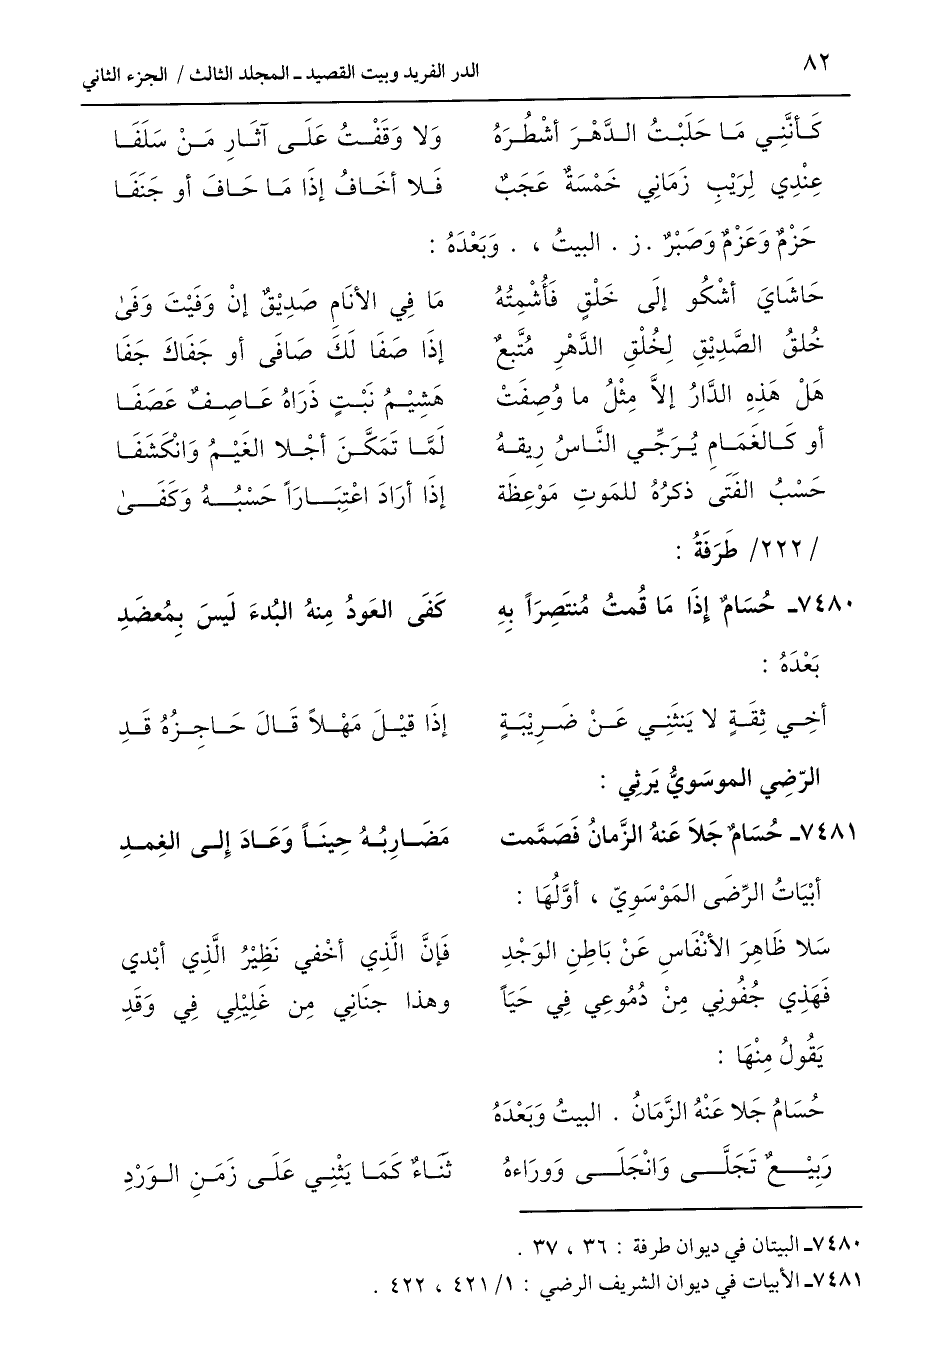 ٨٢
الدر الفريد وبيت القصيد ـ المجلد الثالث / الجزء الثاني
كَأنَّنِي مَا حَلَبْتُ الدَّهْرَ أشْطُرَهُ وَلا وَقَفْتُ عَلَى آثَارِ مَنْ سَلَفَا
عِنْدِي لِرَيْبِ زَمَانِي خَمْسَةٌ عَجَبٌ فَلا أخَافُ إذَا مَا حَافَ أو جَنَفَا
حَزْمٌ وَعَزْمٌ وَصَبْرٌ . ز . البيتُ ، . وَبَعْدَهُ :
حَاشَايَ أشْكُو إلَى خَلْقٍ فَأُشْمِتُهُ مَا فِي الأنَامِ صَدِيْقٌ إنْ وَفَيْتَ وَفَى
خُلقُ الصَّدِيْقِ لِخُلْقِ الدَّهْرِ مُتَّبِعٌ إذَا صَفَا لَكَ صَافَى أو جَفَاكَ جَفَا
هَلْ هَذِهِ الدَّارُ إلاَّ مِثْلُ ما وُصِفَتْ هَشِيْمُ نَبْتٍ ذَرَاهُ عَاصِفٌ عَصَفَا
أو كَالغَمَامِ يُرَجِّي النَّاسُ رِيقهُ لَمَّا تَمَكَّنَ أجْلا الغَيْمُ وَانْكَشَفَا
حَسْبُ الفَتَى ذكرُهُ للمَوتِ مَوْعِظَة إذَا أرَادَ اعْتِبَارَاً حَسْبُهُ وَكَفَىٰ
/٢٢٢/ طَرَفَةُ :
٧٤٨٠ـ حُسَامٌ إذَا مَا قُمتُ مُنتَصِرَاً بِهِ كَفَى العَودُ مِنهُ البُدءَ لَيسَ بِمُعضَدِ
بَعْدَهُ :
أخِي ثِقَةٍ لا يَنثَنِي عَنْ ضَرِيْبَةٍ إذَا قيْلَ مَهْلاً قَالَ حَاجِزُهُ قَدِ
الرّضِي الموسَويُّ يَرثِي :
٧٤٨١ـ حُسَامٌ جَلاَ عَنهُ الزَّمَانُ فَصَمَّمت مَضَارِبُهُ حِينَاً وَعَادَ إلى الغِمدِ
أبْيَاتُ الرِّضَى المَوْسَوِيّ ، أوَّلُهَا :
سَلا ظَاهِرَ الأنْفَاسِ عَنْ بَاطِنِ الوَجْدِ فَإنَّ الَّذِي أخْفي نَظِيْرُ الَّذِي أبْدي
فَهَذِي جُفُونِي مِنْ دُمُوعِي فِي حَيَاً وهذا جنَانِي مِن غَلِيْلِي فِي وَقَدِ
يَقُولُ مِنْهَا :
حُسَامُ جَلا عَنْهُ الزَّمَانُ . البيتُ وَبَعْدَهُ
رَبِيْعٌ تَجَلَّى وَانْجَلَى وَوراءهُ ثَنَاءٌ كَمَا يَثْنِي عَلَى زَمَنِ الوَرْدِ
٧٤٨٠ـ البيتان في ديوان طرفة : ٣٦ ، ٣٧ .
٧٤٨١ـ الأبيات في ديوان الشريف الرضي : ١/ ٤٢١ ، ٤٢٢ .